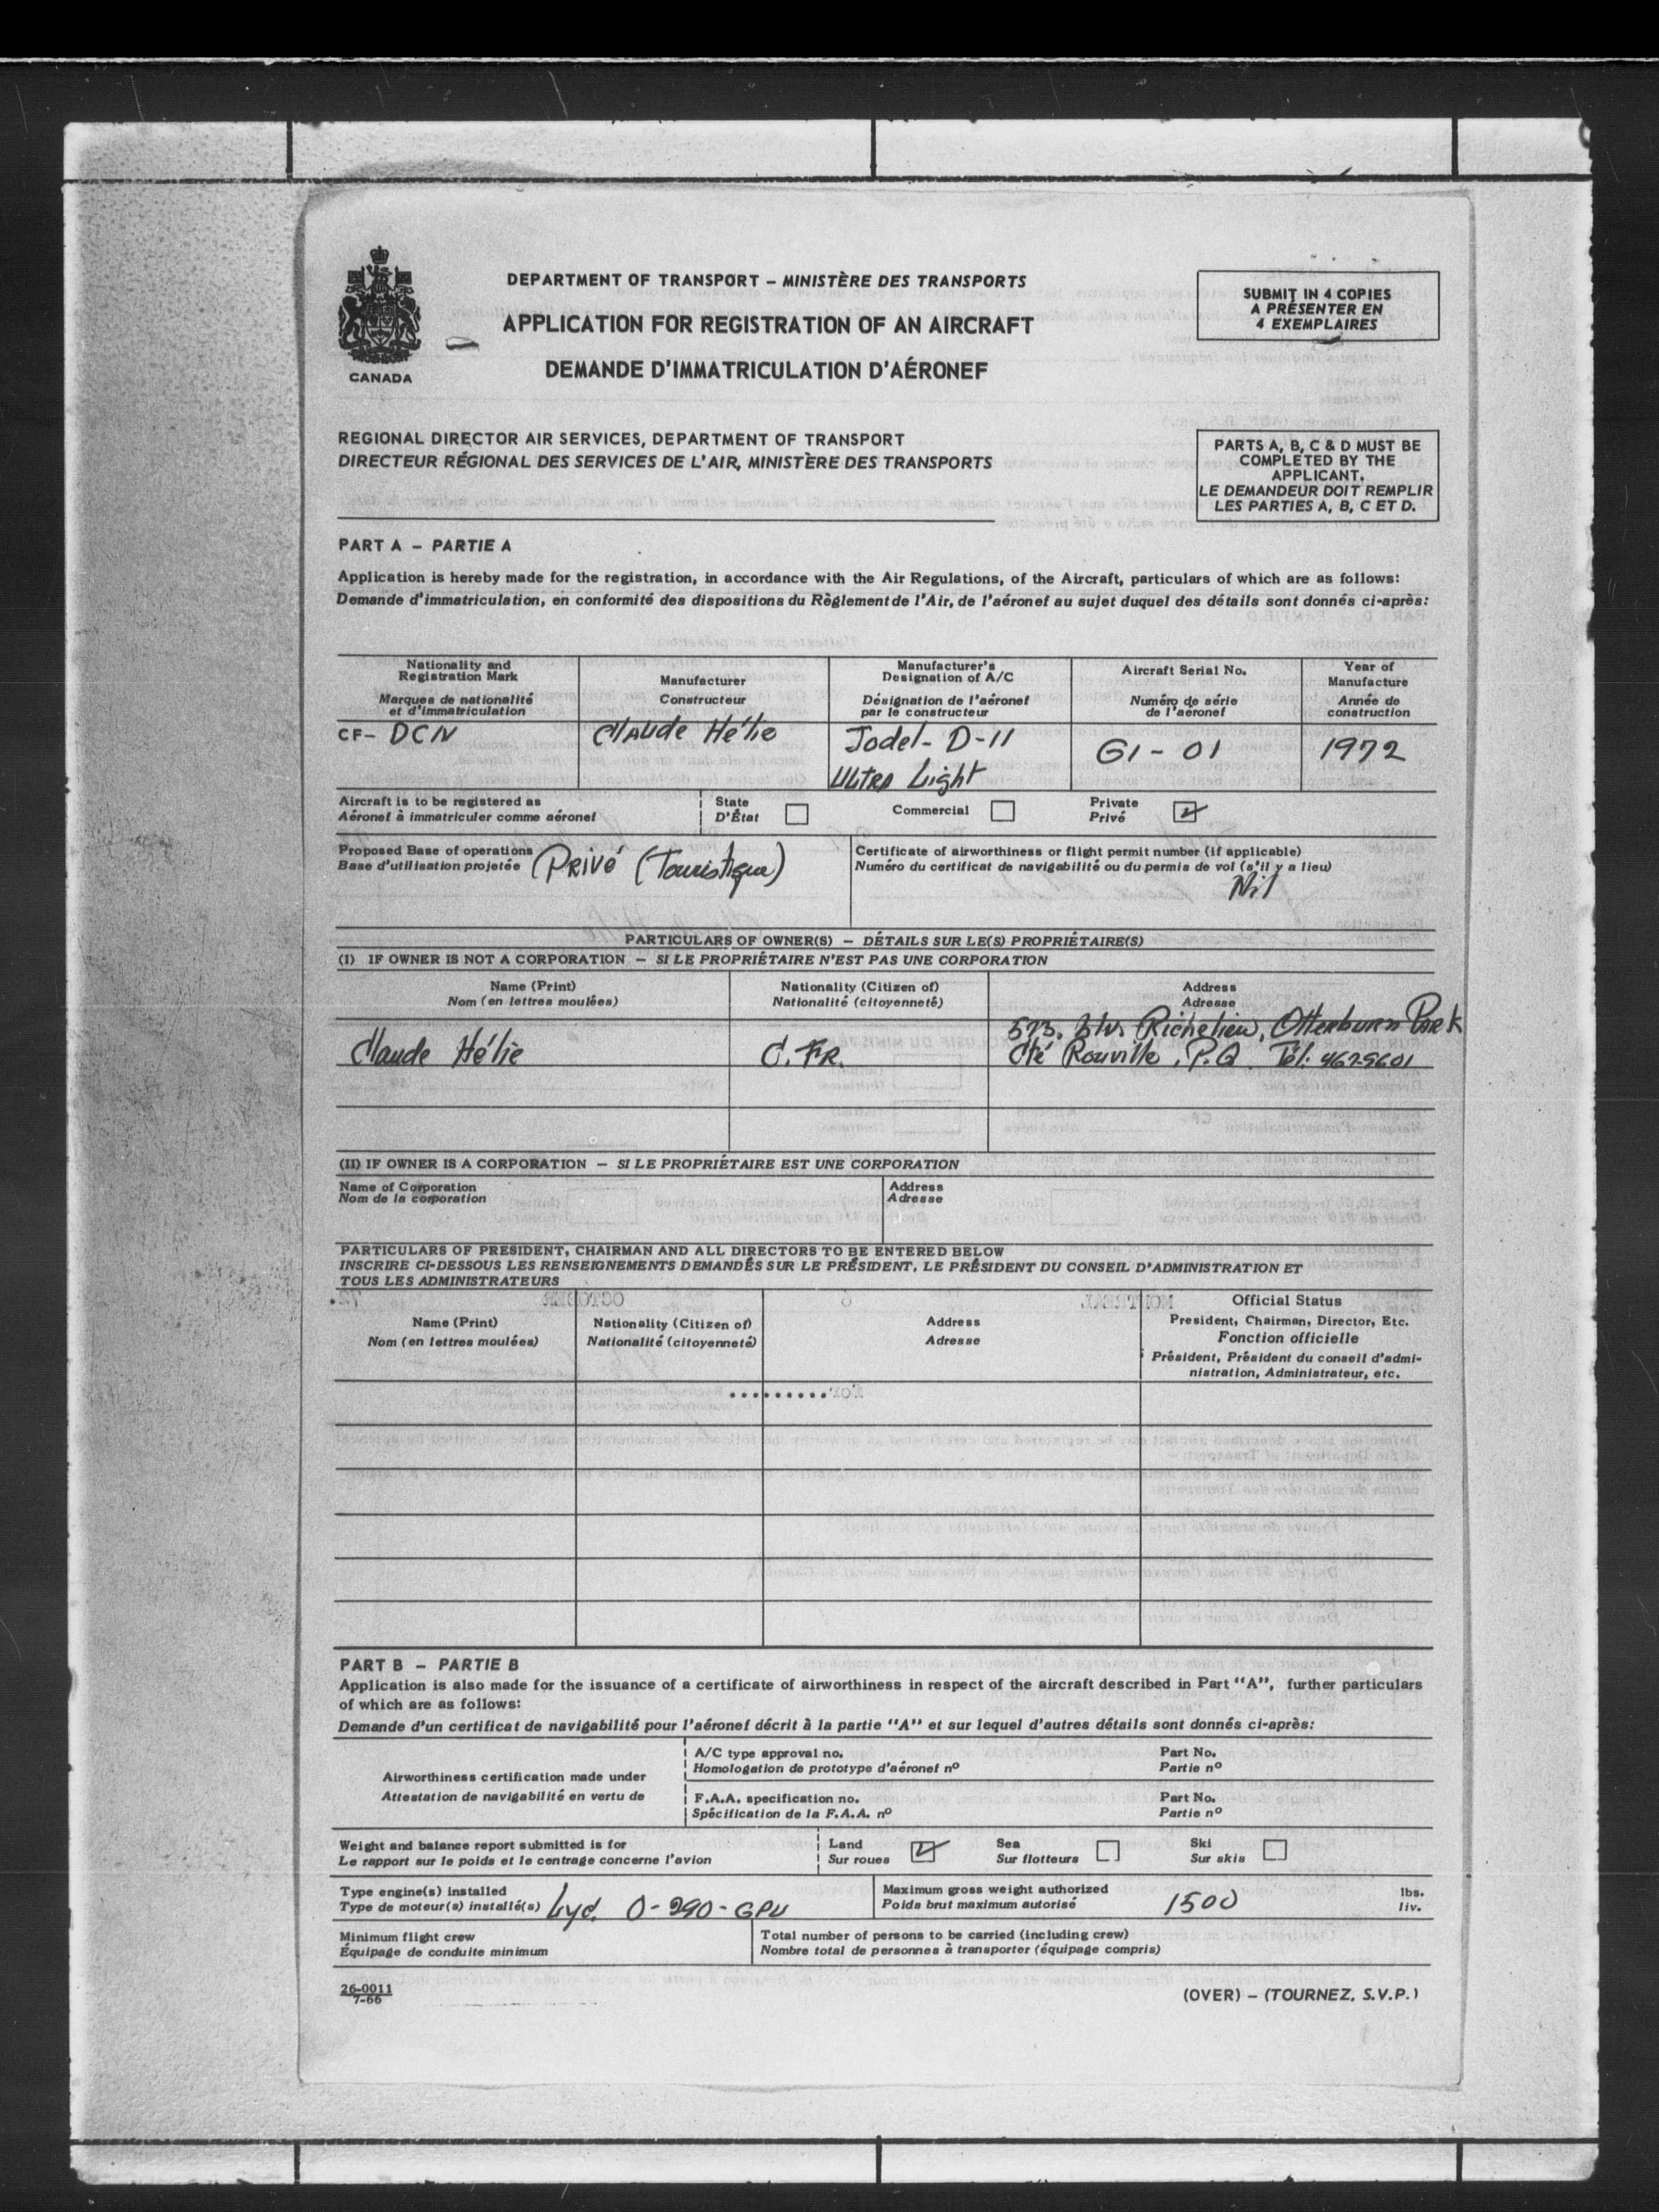 DEPARTMENT OF TRANSPORT – MINISTÈRE DES TRANSPORTS
APPLICATION FOR REGISTRATION OF AN AIRCRAFT
DEMANDE D'IMMATRICULATION D'AÉRONEF
CANADA
SUBMIT IN 4 COPIES
A PRÉSENTER EN
4 EXEMPLAIRES
REGIONAL DIRECTOR AIR SERVICES, DEPARTMENT OF TRANSPORT
DIRECTEUR RÉGIONAL DES SERVICES DE L'AIR, MINISTÈRE DES TRANSPORTS
PARTS A, B, C & D MUST BE
COMPLETED BY THE
APPLICANT.
LE DEMANDEUR DOIT REMPLIR
LES PARTIES A, B, C ET D.
PART A – PARTIE A
Application is hereby made for the registration, in accordance with the Air Regulations, of the Aircraft, particulars of which are as follows:
Demande d'immatriculation, en conformité des dispositions du Règlement de l'Air, de l'aéronef au sujet duquel des détails sont donnés ci-après:
Nationality and
Registration Mark
Marques de nationalité
et d'immatriculation
Manufacturer
Constructeur
Manufacturer's
Designation of A/C
Désignation de l'aéronef
par le constructeur
Aircraft Serial No.
Numéro de série
de l'aéronef
Year of
Manufacture
Année de
construction
CF- DCN
Claude Hélie
Jodel- D-11
Ultra Light
G1 - 01
1972
Aircraft is to be registered as
Aéronef à immatriculer comme aéronef
State
D'État
Commercial
Private
Privé
Proposed Base of operations
Base d'utilisation projetée Privé (Touristique)
Certificate of airworthiness or flight permit number (if applicable)
Numéro du certificat de navigabilité ou du permis de vol (s'il y a lieu)
Nil
PARTICULARS OF OWNER(S) – DÉTAILS SUR LE(S) PROPRIÉTAIRE(S)
(I) IF OWNER IS NOT A CORPORATION – SI LE PROPRIÉTAIRE N'EST PAS UNE CORPORATION
Name (Print)
Nom (en lettres moulées)
Nationality (Citizen of)
Nationalité (citoyenneté)
Address
Adresse
573, Richelieu, Otterburn Park
Claude Hélie
C. FR.
Cté Rouville, P.Q. Tél: 467-9601
(II) IF OWNER IS A CORPORATION – SI LE PROPRIÉTAIRE EST UNE CORPORATION
Name of Corporation
Nom de la corporation
Address
Adresse
PARTICULARS OF PRESIDENT, CHAIRMAN AND ALL DIRECTORS TO BE ENTERED BELOW
INSCRIRE CI-DESSOUS LES RENSEIGNEMENTS DEMANDÉS SUR LE PRÉSIDENT, LE PRÉSIDENT DU CONSEIL D'ADMINISTRATION ET
TOUS LES ADMINISTRATEURS
Name (Print)
Nom (en lettres moulées)
Nationality (Citizen of)
Nationalité (citoyenneté)
Address
Adresse
Official Status
President, Chairman, Director, Etc.
Fonction officielle
Président, Président du conseil d'admi-
nistration, Administrateur, etc.
PART B – PARTIE B
Application is also made for the issuance of a certificate of airworthiness in respect of the aircraft described in Part "A", further particulars
of which are as follows:
Demande d'un certificat de navigabilité pour l'aéronef décrit à la partie "A" et sur lequel d'autres détails sont donnés ci-après:
Airworthiness certification made under
Attestation de navigabilité en vertu de
A/C type approval no.
Homologation de prototype d'aéronef nº
Part No.
Partie nº
F.A.A. specification no.
Spécification de la F.A.A. nº
Part No.
Partie nº
Weight and balance report submitted is for
Le rapport sur le poids et le centrage concerne l'avion
Land
Sur roues
Sea
Sur flotteurs
Ski
Sur skis
Type engine(s) installed
Type de moteur(s) installé(s) Lyc. O-290-GPU
Maximum gross weight authorized
Poids brut maximum autorisé
1500
lbs.
liv.
Minimum flight crew
Équipage de conduite minimum
Total number of persons to be carried (including crew)
Nombre total de personnes à transporter (équipage compris)
26-0011
7-66
(OVER) – (TOURNEZ, S.V.P.)